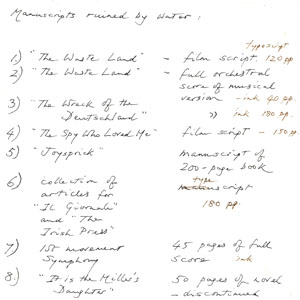 Manuscripts ruined by water:
typescript
1) "The Waste Land" – film script. 120 pp.
2) "The Waste Land" – full orchestral
score of musical
version – ink 40 pp.
3) "The Wreck of the
Deutschland" " ink 180 pp.
4) "The Spy Who Loved Me" – film script – 150 pp.
5) "Joysprick" manuscript of
200-page book
6) collection of type
articles for script
"Il Giornale" 180 pp.
and "The
Irish Press"
7) 1st movement 45 pages of full
Symphony score ink
8.) "It is the Miller's 50 pages of novel
Daughter" – discontinued